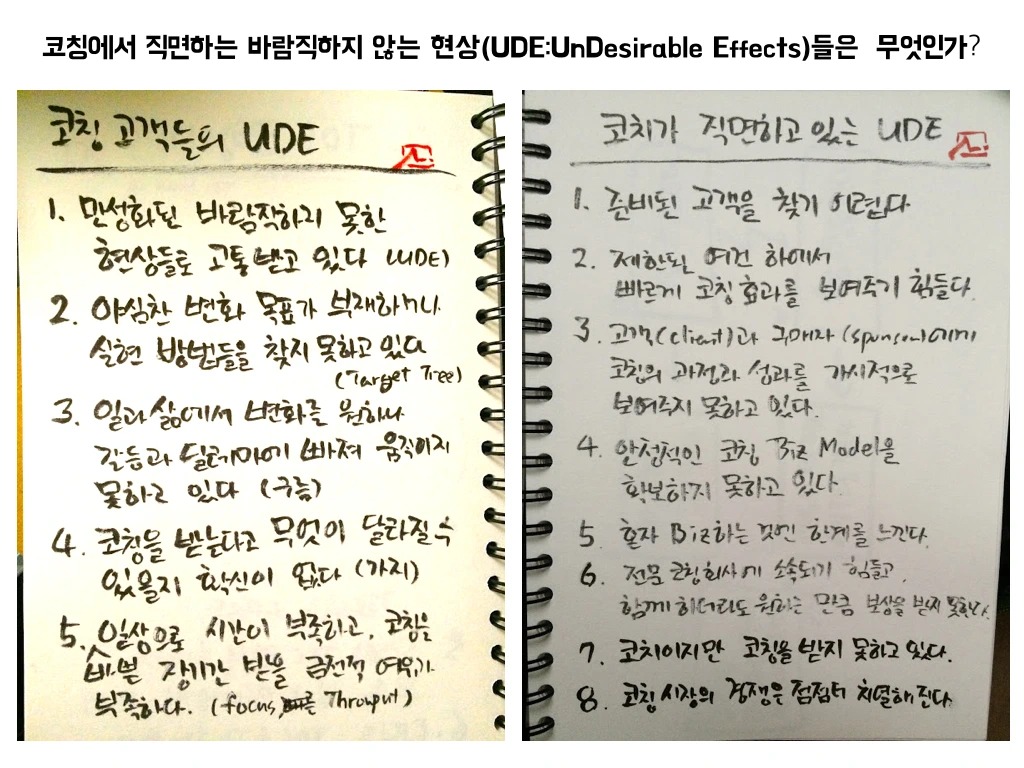 코칭에서 직면하는 바람직하지 않는 현상(UDE:UnDesirable Effects)들은 무엇인가?
코칭 고객들의 UDE
1. 만성화된 바람직하지 못한
현상들로 고통 받고 있다 (UDE)
2. 야심찬 변화 목표가 부재하거나
실현 방법들을 찾지 못하고 있다
(Target Tree)
3. 일과 삶에서 변화를 원하나
갈등과 딜레마에 빠져 움직이지
못하고 있다 (구름)
4. 코칭을 받는다고 무엇이 달라질 수
있을지 확신이 없다 (가지)
5. 일상으로 시간이 부족하고, 코칭을
바쁠 장기간 받을 금전적 여유가
부족하다. (focus, Throuput)
코치가 직면하고 있는 UDE
1. 준비된 고객을 찾기 어렵다
2. 제한된 여건 하에서
빠르게 코칭 효과를 보여주기 힘들다.
3. 고객(client)과 구매자(sponsor)에게
코칭의 과정과 성과를 가시적으로
보여주지 못하고 있다.
4. 안정적인 코칭 Biz Model을
확보하지 못하고 있다.
5. 혼자 Biz하는 것엔 한계를 느낀다.
6. 전문 코칭회사에 소속되기 힘들고,
함께 하더라도 원하는 만큼 보상을 받지 못한다.
7. 코치이지만 코칭을 받지 못하고 있다.
8. 코칭 시장의 경쟁은 점점더 치열해진다.